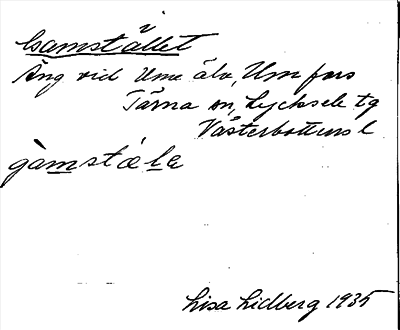 Gamstället
Äng vid Ume älv, Umfors
Tärna sn, Lycksele tg
Västerbottens l
gàmstæle
Lisa Lidberg 1935